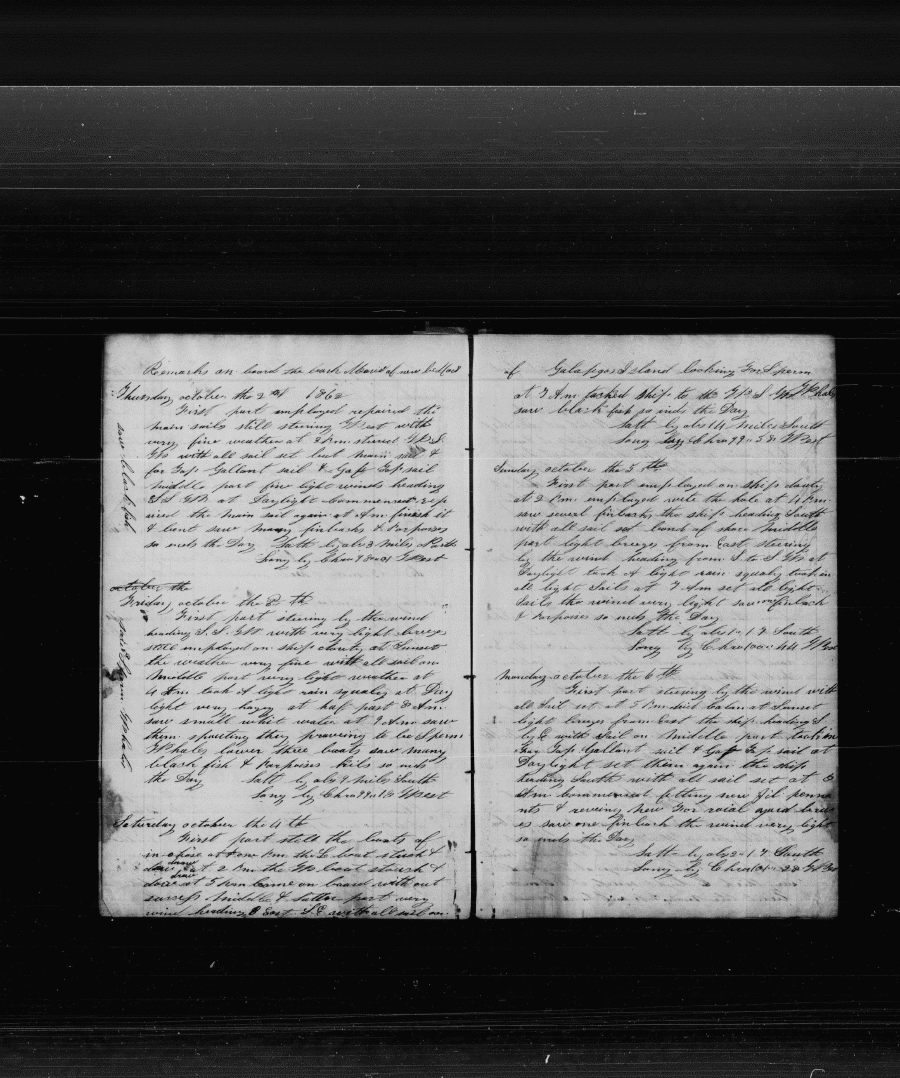 Remarks on board the bark of new bedford
Thursday october the 2nd 1862
First part employed repaired the
main sails still steering West with
very fine weather at 2 Pm stered W.S.
with all sail set but main sail &
for Gap Gallant sail & Gaff Top sail
Middle part fine light winds heading
S.S.W. at Daylight commenced rep
aired the main sail again at Am finish it
& bent saw many finbacks & Porpoises
so ends the Day Latt by abs 3 Miles North
Long by Chro West
saw black fish
october the
Friday october the 3 th
First part stering by the wind
heading S.S.W with very light breeze
still employed on ship duty at Sunset
the weather very fine with all sail on
Middle part very light weather at
4 Am took A light rain squaly at Day
light very hazy at haf past 8 Am
saw small whit water at 9 Am saw
them spouting they proveing to be Sperm
Whales lower three boats saw many
black fish & Porpoises so ends
the Day Latt by abs 9 Miles South
Long by Chro 99 West
saw Sperm Whale
Saturday october the 4 th
First part still the boats of
in chase at Pm the L boat struck &
draw
at 2 Pm the W boat struck &
draw
at 5 Pm came on board with out
success Middle & Latter part very
wind heading East S.E with all sail on
of Galapgos Island looking For Sperm
at 7 Am tacked ship to the W.S. Whale
saw black fish so ends the Day
Latt by abs 14 miles South
Long Chro 99 = 58 West
Sunday october the 5 th
First part employed on ship dauty
at 2 Pm employed the hole at 4 Pm
saw severl finbacks the ship heading South
with all sail set of shore Middle
part light breeze from East steering
by the wind heading from S to S W at
Daylight took A light rain squaly took in
all light Sails at 7 Am set all light
Sails the wind very light saw one finback
& Porpoises so ends the Day
Latt by abs 1 = 17 South
Long by Chro 100 = 44 West
Monday october the 6 th
First part stering by the wind with
all Sail set at 5 Pm calm at Sunset
light breeze from East the ship heading S
by E with Sail on Middle part took in
For Gap Gallant sail & Gaff Top sail at
Daylight set them again the ship
heading South with all sail set at 8
Am Commenced fitting new Jib penna
nts & reveing new For roial yard brac
es saw one finback the wind very light
so ends the Day
Latt by abs 2 = 17 South
Long by Chro 101 = 28 West